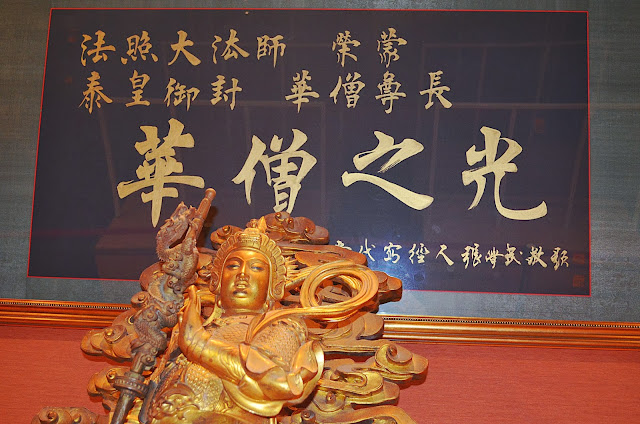 法照大法師 榮蒙
泰皇御封 華僧尊長
華僧之光
代寫經人張學武敬題